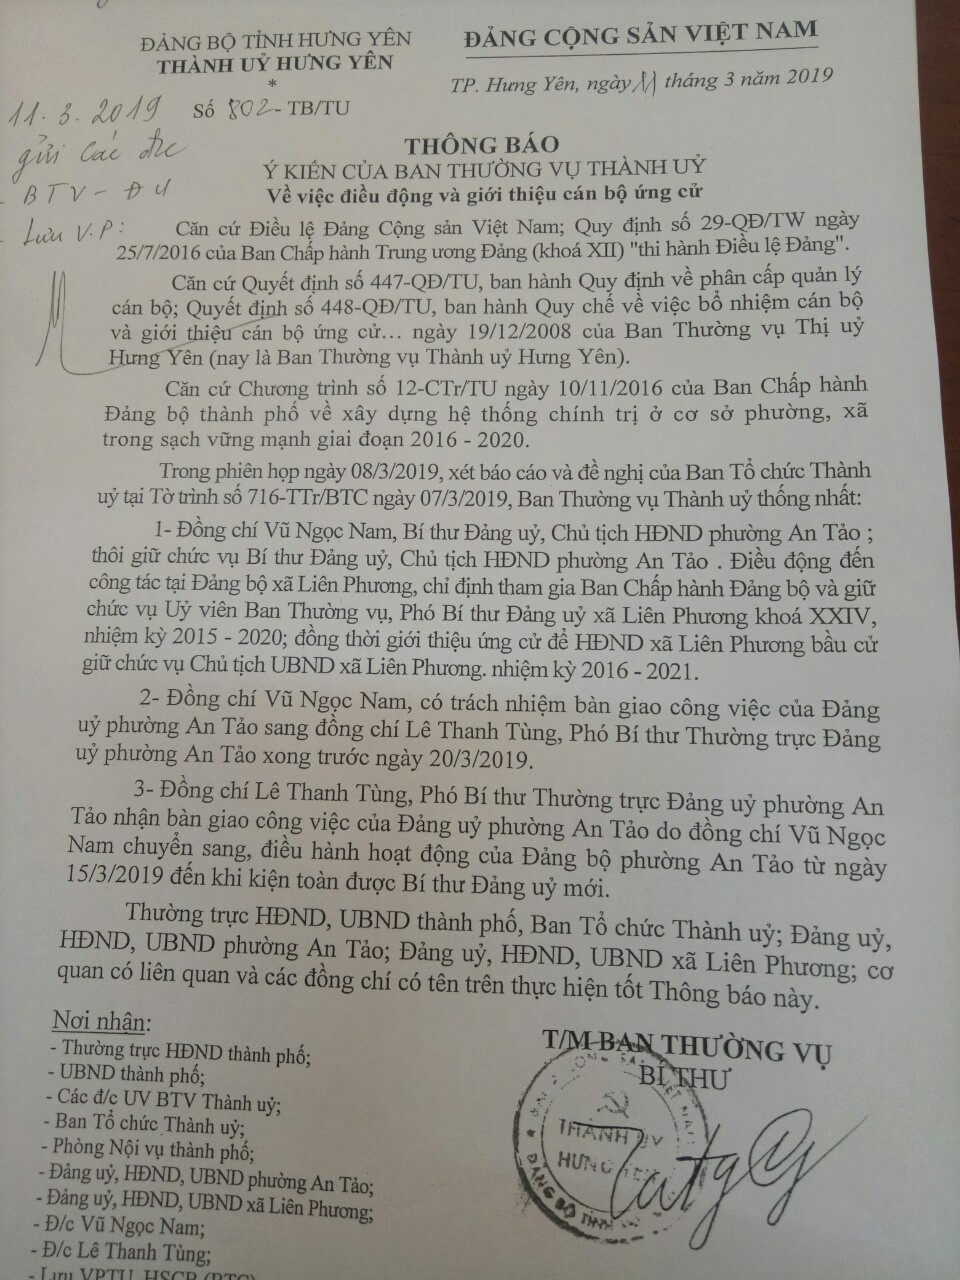 ĐẢNG BỘ TỈNH HƯNG YÊN
THÀNH UỶ HƯNG YÊN
*
Số 802- TB/TU
ĐẢNG CỘNG SẢN VIỆT NAM
TP. Hưng Yên, ngày 11 tháng 3 năm 2019
11.3.2019
gửi các đ/c
- BTV - ĐU
- Lưu V.P:
THÔNG BÁO
Ý KIẾN CỦA BAN THƯỜNG VỤ THÀNH UỶ
Về việc điều động và giới thiệu cán bộ ứng cử
Căn cứ Điều lệ Đảng Cộng sản Việt Nam; Quy định số 29-QĐ/TW ngày
25/7/2016 của Ban Chấp hành Trung ương Đảng (khoá XII) "thi hành Điều lệ Đảng".
Căn cứ Quyết định số 447-QĐ/TU, ban hành Quy định về phân cấp quản lý
cán bộ; Quyết định số 448-QĐ/TU, ban hành Quy chế về việc bổ nhiệm cán bộ
và giới thiệu cán bộ ứng cử... ngày 19/12/2008 của Ban Thường vụ Thị uỷ
Hưng Yên (nay là Ban Thường vụ Thành uỷ Hưng Yên).
Căn cứ Chương trình số 12-CTr/TU ngày 10/11/2016 của Ban Chấp hành
Đảng bộ thành phố về xây dựng hệ thống chính trị ở cơ sở phường, xã
trong sạch vững mạnh giai đoạn 2016 - 2020.
Trong phiên họp ngày 08/3/2019, xét báo cáo và đề nghị của Ban Tổ chức Thành
uỷ tại Tờ trình số 716-TTr/BTC ngày 07/3/2019, Ban Thường vụ Thành uỷ thống nhất:
1- Đồng chí Vũ Ngọc Nam, Bí thư Đảng uỷ, Chủ tịch HĐND phường An Tảo ;
thôi giữ chức vụ Bí thư Đảng uỷ, Chủ tịch HĐND phường An Tảo . Điều động đến
công tác tại Đảng bộ xã Liên Phương, chỉ định tham gia Ban Chấp hành Đảng bộ và giữ
chức vụ Uỷ viên Ban Thường vụ, Phó Bí thư Đảng uỷ xã Liên Phương khoá XXIV,
nhiệm kỳ 2015 - 2020; đồng thời giới thiệu ứng cử để HĐND xã Liên Phương bầu cử
giữ chức vụ Chủ tịch UBND xã Liên Phương. nhiệm kỳ 2016 - 2021.
2- Đồng chí Vũ Ngọc Nam, có trách nhiệm bàn giao công việc của Đảng
uỷ phường An Tảo sang đồng chí Lê Thanh Tùng, Phó Bí thư Thường trực Đảng
uỷ phường An Tảo xong trước ngày 20/3/2019.
3- Đồng chí Lê Thanh Tùng, Phó Bí thư Thường trực Đảng uỷ phường An
Tảo nhận bàn giao công việc của Đảng uỷ phường An Tảo do đồng chí Vũ Ngọc
Nam chuyển sang, điều hành hoạt động của Đảng bộ phường An Tảo từ ngày
15/3/2019 đến khi kiện toàn được Bí thư Đảng uỷ mới.
Thường trực HĐND, UBND thành phố, Ban Tổ chức Thành uỷ; Đảng uỷ,
HĐND, UBND phường An Tảo; Đảng uỷ, HĐND, UBND xã Liên Phương; cơ
quan có liên quan và các đồng chí có tên trên thực hiện tốt Thông báo này.
Nơi nhận:
- Thường trực HĐND thành phố;
- UBND thành phố;
- Các đ/c UV BTV Thành uỷ;
- Ban Tổ chức Thành uỷ;
- Phòng Nội vụ thành phố;
- Đảng uỷ, HĐND, UBND phường An Tảo;
- Đảng uỷ, HĐND, UBND xã Liên Phương;
- Đ/c Vũ Ngọc Nam;
- Đ/c Lê Thanh Tùng;
- Lưu VPTU, HSCB (BTC)
T/M BAN THƯỜNG VỤ
BÍ THƯ
THÀNH UỶ
HƯNG YÊN
ĐẢNG BỘ TỈNH